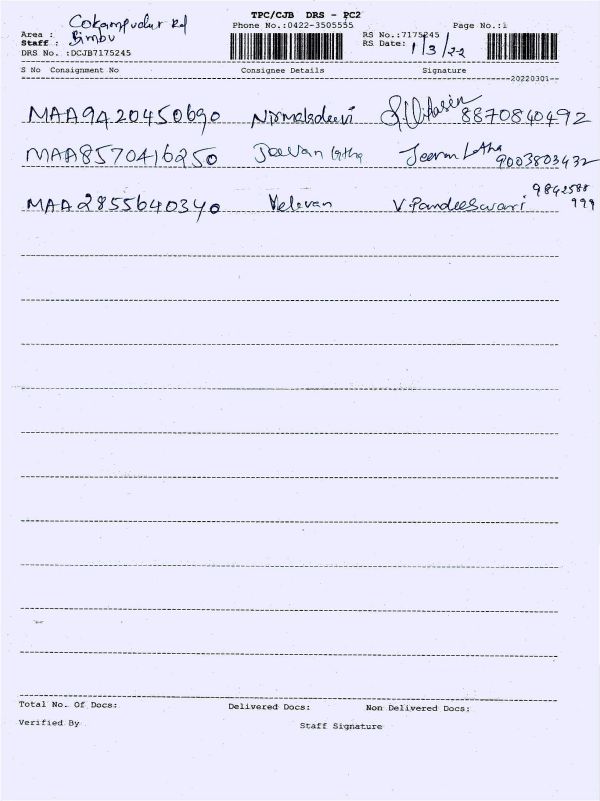 TPC/CJB DRS - PC2
Area : Cokampudur Rd Phone No.:0422-3505555 RS No.:7175245 Page No.:1
Staff : Bimbu RS Date: 1/3/22
DRS No. :DCJB7175245
S No Consignment No Consignee Details Signature
20220301
MAA9420450690 Nirmaladeevi 8870840492
MAA8570416250 Jeevan latha Jeevan Latha 9003803432
MAA2855640340 Velavan V.Pandeeswari 9842588
999
Total No. Of Docs: Delivered Docs: Non Delivered Docs:
Verified By Staff Signature